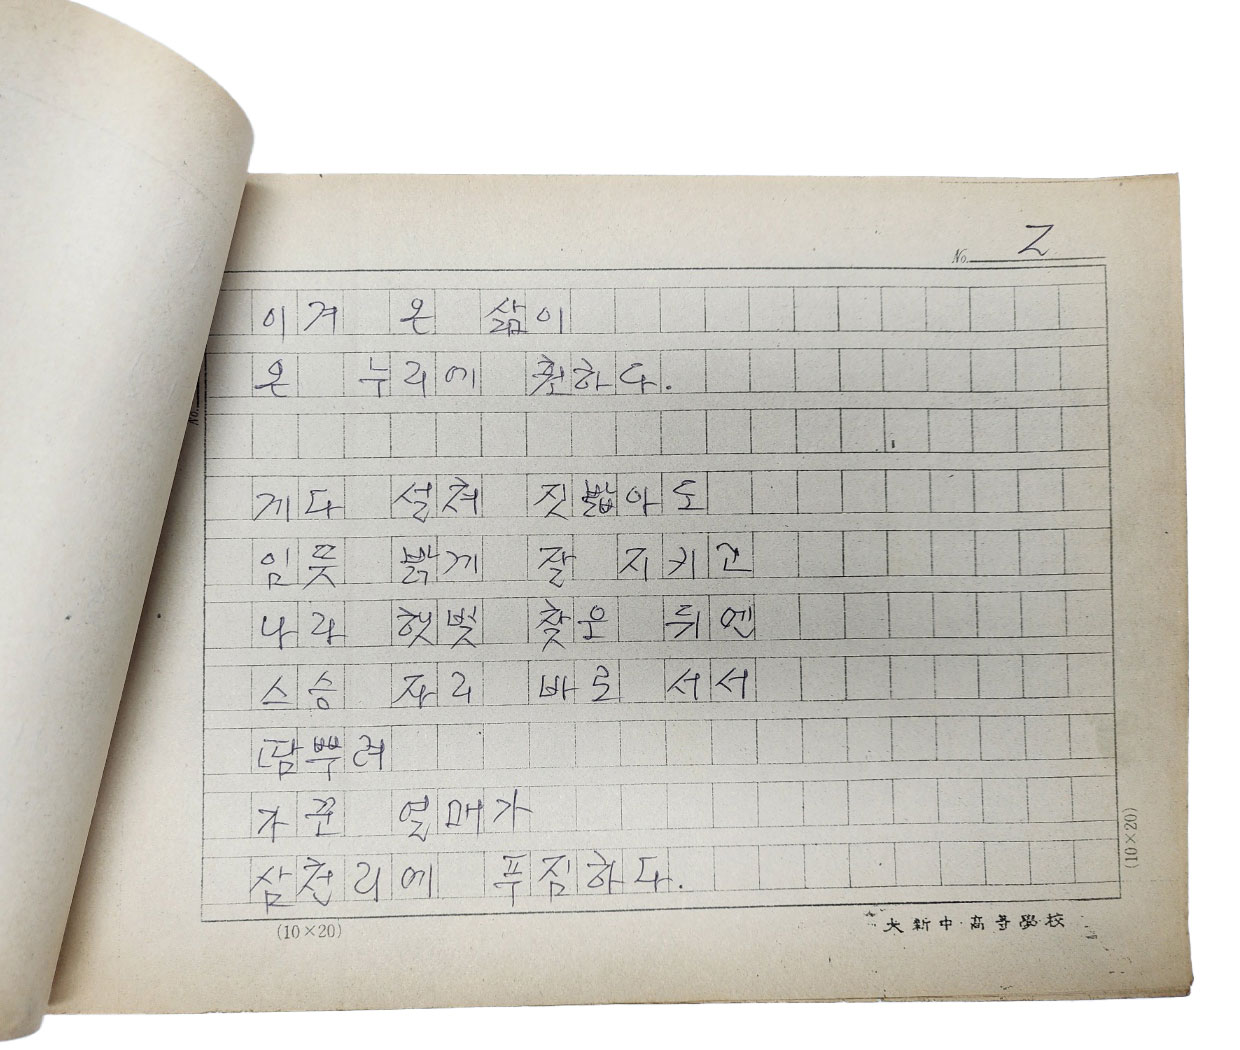 No. 2
이겨 온 삶이
온 누리에 환하다.
게다 설쳐 짓밟아도
임뜻 밝게 잘 지키고
나라 햇빛 찾은 뒤엔
스승 자리 바로 서서
땀뿌려
가꾼 열매가
삼천리에 푸짐하다.
(10×20)
(10×20)
大新中·高等學校
No.